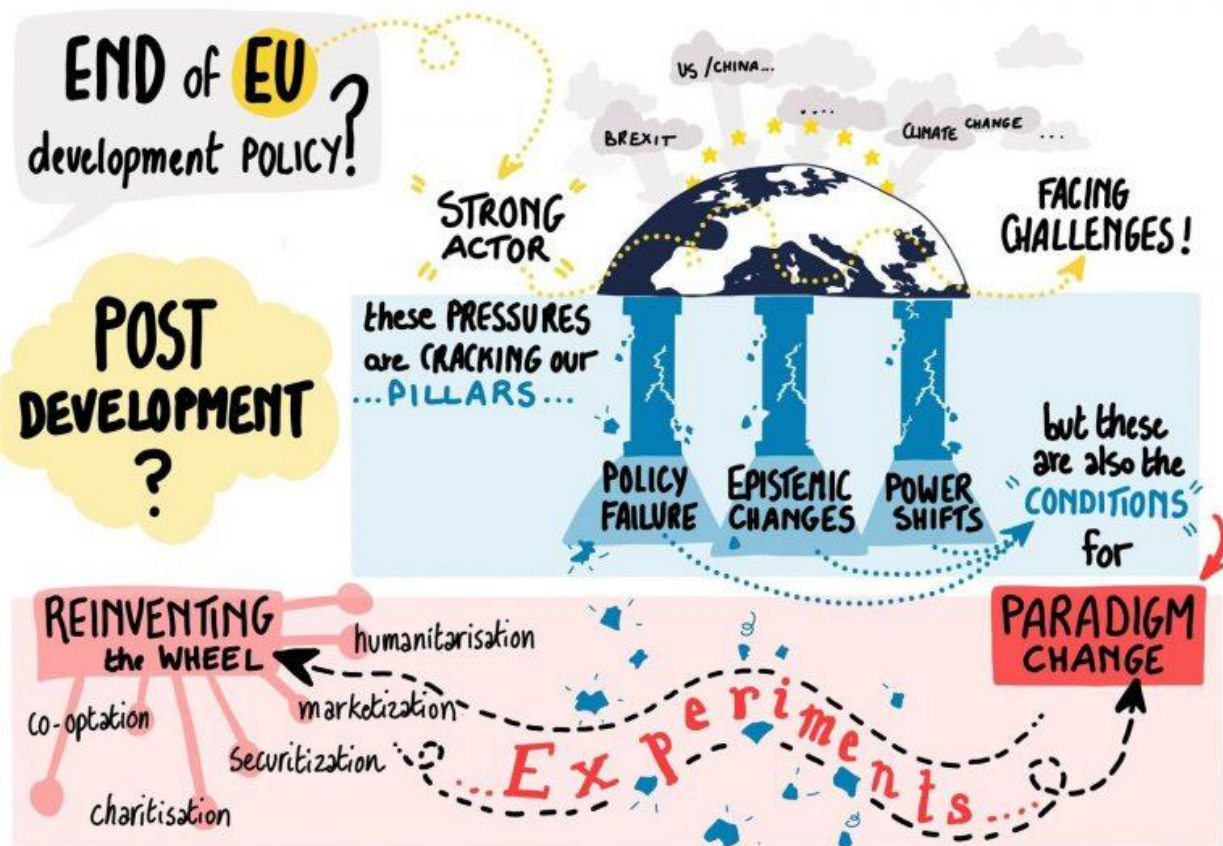 END of EU
development POLICY?!
US/CHINA...
....
BREXIT
CLIMATE CHANGE ...
STRONG
ACTOR
FACING
CHALLENGES!
POST
DEVELOPMENT
?
these PRESSURES
are CRACKING our
...PILLARS...
POLICY
FAILURE
EPISTEMIC
CHANGES
POWER
SHIFTS
but these
are also the
"CONDITIONS"
for
PARADIGM
CHANGE
REINVENTING
the WHEEL
humanitarisation
marketization
co-optation
securitization
charitisation
...Experiments....